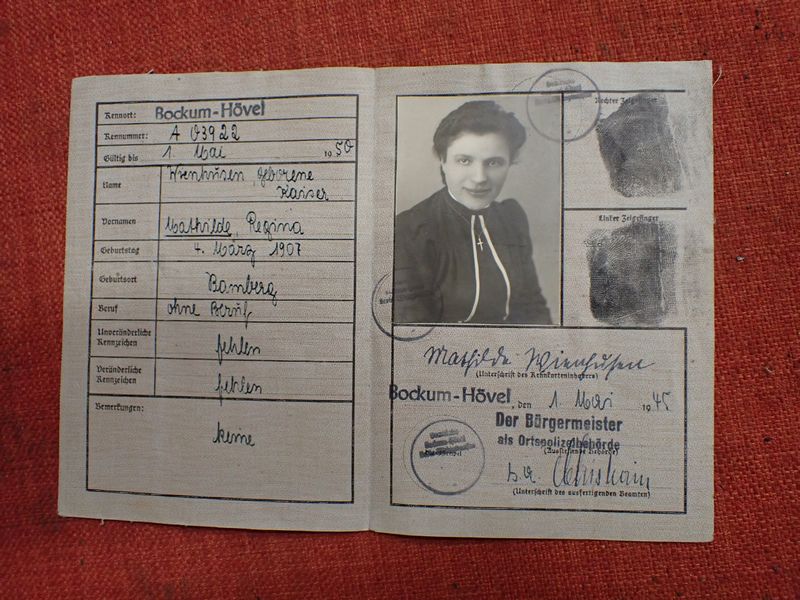 Kennort: Bockum-Hövel
Kennummer: A 03922
Gültig bis 1. Mai 1950
Name Wienhusen, geborene
Kaiser
Vornamen Mathilde, Regina
Geburtstag 4. März 1907
Geburtsort Bamberg
Beruf ohne Beruf
Unveränderliche
Kennzeichen fehlen
Veränderliche
Kennzeichen fehlen
Bemerkungen:
keine
Rechter Zeigefinger
Linker Zeigefinger
Mathilde Wienhusen
(Unterschrift des Kennkarteninhabers)
Bockum-Hövel, den 1. Mai 1945
Der Bürgermeister
als Ortspolizeibehörde
(Ausstellende Behörde)
(Unterschrift des ausfertigenden Beamten)